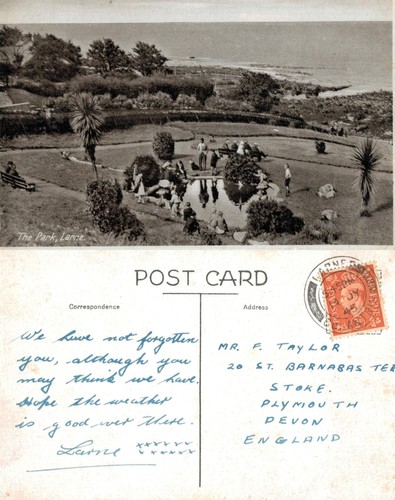 The Park, Larne.
POST CARD
Correspondence
Address
LARNE
We have not forgotten
you, although you
may think we have.
Hope the weather
is good over there.
Larne
xxxxxxx
xxxxxxx
MR. F. TAYLOR
20 ST. BARNABAS TER
STOKE.
PLYMOUTH
DEVON
ENGLAND